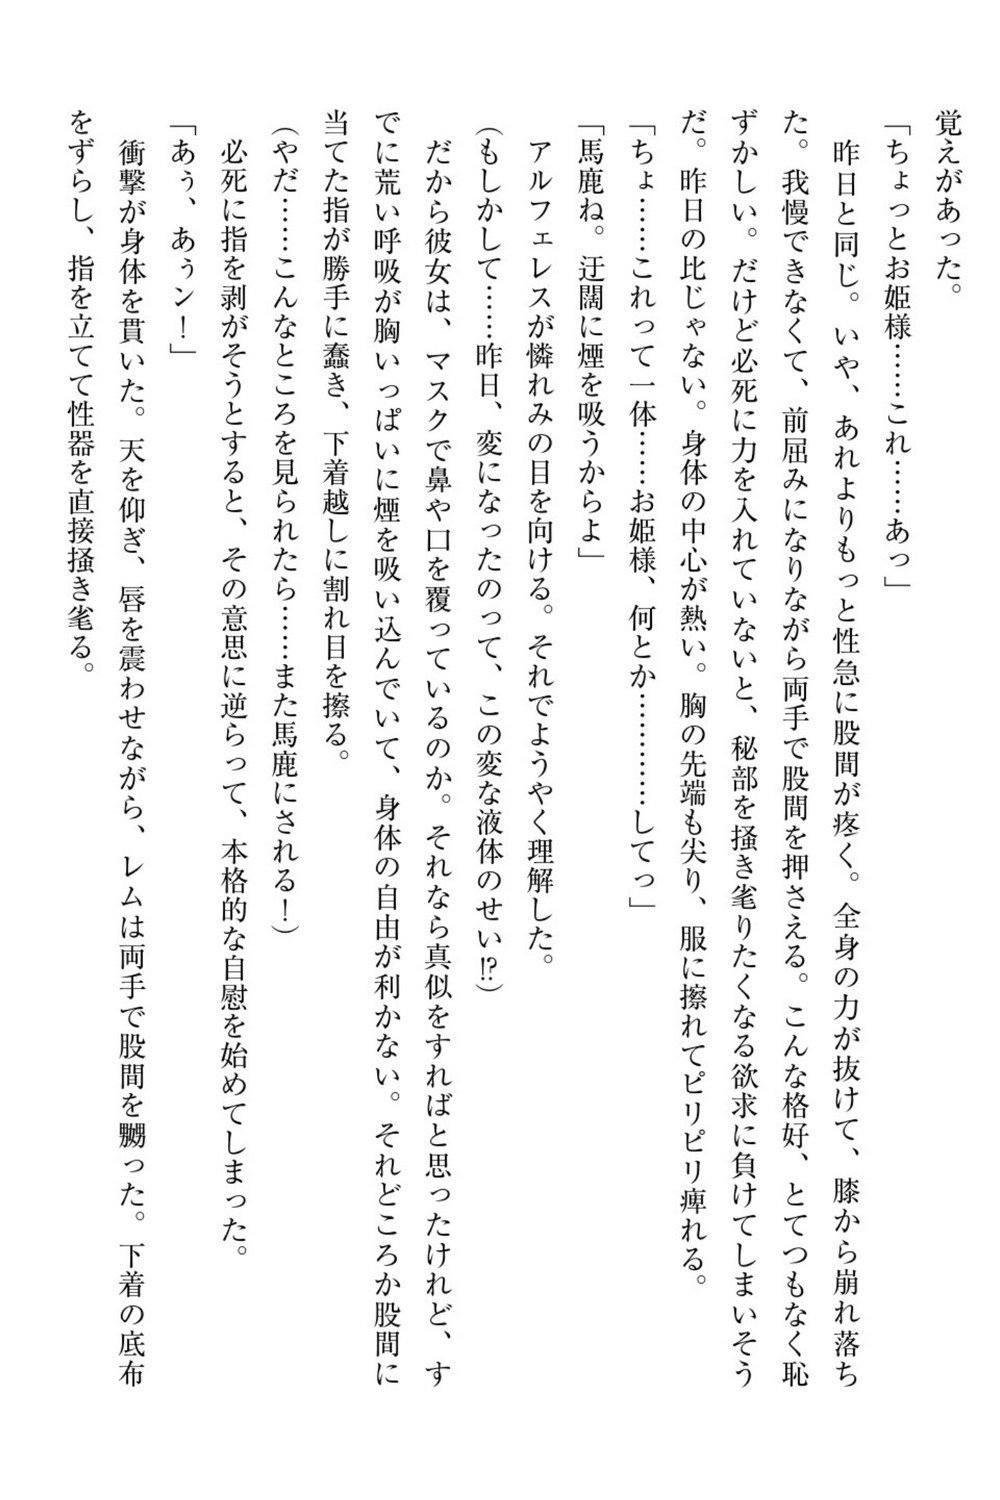 覚えがあった。
「ちょっとお姫様……これ……あっ」
昨日と同じ。いや、あれよりもっと性急に股間が疼く。全身の力が抜けて、膝から崩れ落ち
た。我慢できなくて、前屈みになりながら両手で股間を押さえる。こんな格好、とてつもなく恥
ずかしい。だけど必死に力を入れていないと、秘部を掻き毟りたくなる欲求に負けてしまいそう
だ。昨日の比じゃない。身体の中心が熱い。胸の先端も尖り、服に擦れてピリピリ痺れる。
「ちょ……これって一体……お姫様、何とか…………してっ」
「馬鹿ね。迂闊に煙を吸うからよ」
アルフェレスが憐れみの目を向ける。それでようやく理解した。
(もしかして……昨日、変になったのって、この変な液体のせい!?)
だから彼女は、マスクで鼻や口を覆っているのか。それなら真似をすればと思ったけれど、す
でに荒い呼吸が胸いっぱいに煙を吸い込んでいて、身体の自由が利かない。それどころか股間に
当てた指が勝手に蠢き、下着越しに割れ目を擦る。
(やだ……こんなところを見られたら……また馬鹿にされる!)
必死に指を剥がそうとすると、その意思に逆らって、本格的な自慰を始めてしまった。
「あぅ、あぅン!」
衝撃が身体を貫いた。天を仰ぎ、唇を震わせながら、レムは両手で股間を嬲った。下着の底布
をずらし、指を立てて性器を直接掻き毟る。